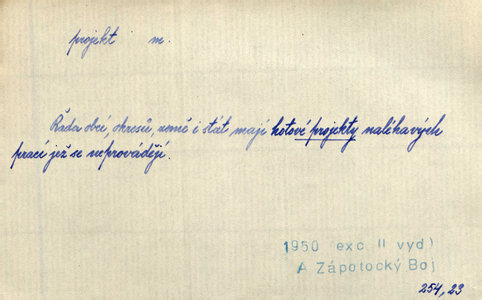 projekt m.
Řada obcí, okresů, země i stát mají hotové projekty naléhavých
prací jež se neprovádějí.
1950 (exc II vyd)
A Zápotocký Boj
254, 23